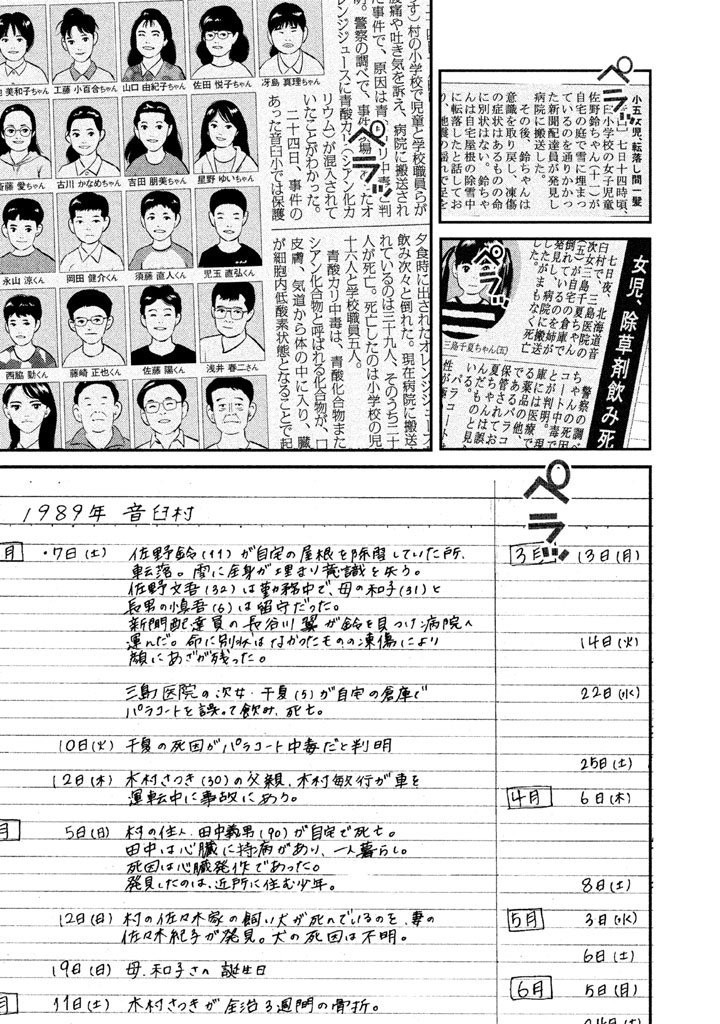 す）村の小学校で児童と学校職員らが
腹痛や吐き気を訴え、病院に搬送され
た事件で、原因は青
オレンジュースに青酸カリ（シアン化カ
リウム）が混入されて
いたことがわかった。
二十四日、事件の
あった音臼小では保護
美和子ちゃん
工藤 小百合ちゃん
山口 由紀子ちゃん
佐田 悦子ちゃん
冴島 真理ちゃん
斎藤 愛ちゃん
古川 かなめちゃん
吉田 朋美ちゃん
星野 ゆいちゃん
永山 涼くん
岡田 健介くん
須藤 直人くん
児玉 直弘くん
西脇 勤くん
藤崎 正也くん
佐藤 陽くん
浅井 春二さん
夕食時に出されたオレンジジュース
飲み次々と倒れた。現在病院に搬送
れているのは三十九人、そのうち二十
人が死亡。死亡したのは小学校の児
十六人と学校職員五人。
青酸カリ中毒は、青酸化合物また
シアン化合物と呼ばれる化合物が、口
皮膚、気道から体の中に入り、臓
が細胞内低酸素状態となることで起
ペラッ
小五女児、転落し間一髪
七日十四時頃、
臼小学校の女子児童
佐野鈴ちゃん（十一）が
自宅の庭で雪に埋まっ
ているのを通りかかっ
た新聞配達員が発見し
病院に搬送した。
その後、鈴ちゃんは
意識を取り戻し、凍傷
の症状はあるものの命
に別状はない。鈴ちゃ
んは自宅屋根の除雪中
に転落したと話してお
ペラッ
女児、除草剤飲み死
七日夜、北海道音
臼村で、三島医院の
次女三島千夏ちゃん
（五）が自宅の倉庫で
倒れているのを姉が
発見し、病院に搬送
したがまもなく死亡
した。
三島千夏ちゃん（五）
警察の調べ
ちゃんの死因
コート中毒で
とが判明。現
庫には医療で
る薬品の他、
であるパラコ
保管されてお
夏ちゃんは誤
んだものと見
いる。
パラコート
性が極
ペラッ
ペラッ
1989年 音臼村
月
・7日（土） 佐野鈴（11）が自宅の屋根を除雪していた所、
転落。雪に全身が埋まり意識を失う。
佐野文吾（32）は勤務中で、母の和子（31）と
長男の慎吾（6）は留守だった。
新聞配達員の長谷川翼が鈴を見つけ病院へ
運んだ。命に別状はなかったものの凍傷により
顔にあざが残った。
三島医院の次女・千夏（5）が自宅の倉庫で
パラコートを誤って飲み、死亡。
10日（火） 千夏の死因がパラコート中毒だと判明
12日（木） 木村さつき（30）の父親、木村敏行が車を
運転中に事故にあう。
月
5日（日） 村の住人・田中義男（90）が自宅で死亡。
田中は心臓に持病があり、一人暮らし。
死因は心臓発作であった。
発見したのは、近所に住む少年。
12日（日） 村の佐々木家の飼い犬が死んでいるのを、妻の
佐々木紀子が発見。犬の死因は不明。
19日（日） 母、和子さんの誕生日
月
11日（土） 木村さつきが全治3週間の骨折。
3月 13日（月）
14日（火）
22日（水）
25日（土）
4月 6日（木）
8日（土）
5月 3日（水）
6日（土）
6月 5日（月）